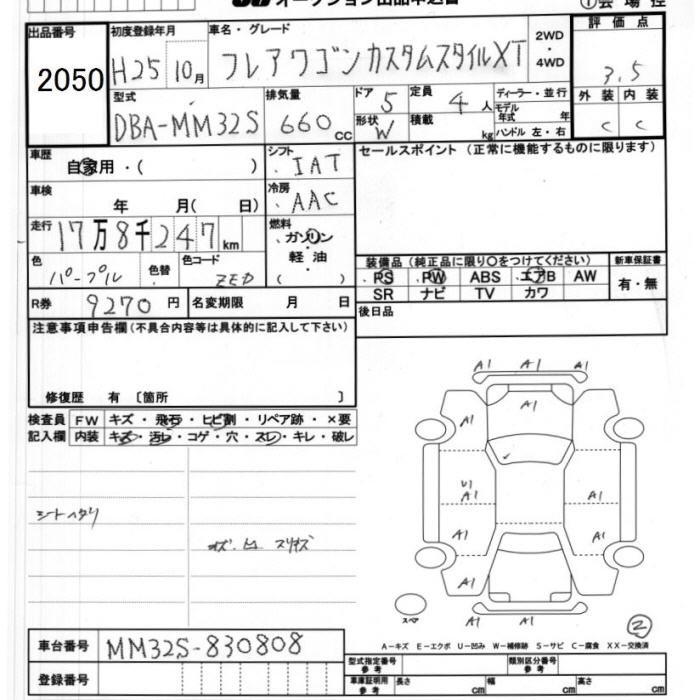 オークション出品申込書
①会場控
出品番号
2050
初度登録年月
H25 10月
車名・グレード
フレアワゴンカスタムスタイルXT
2WD
・
4WD
評価点
3.5
外装 内装
C C
型式
DBA-MM32S
排気量
660 cc
ドア 5
形状 W
定員 4 人
積載 kg
ディーラー・並行
モデル年式 年
ハンドル 左・右
車歴
自家用・( )
シフト
IAT
セールスポイント (正常に機能するものに限ります)
車検
年 月( 日)
冷房
AAC
走行
17万8千247km
燃料
ガソリン
・
軽油
( )
色
パープル
色替
色コード
ZED
装備品 (純正品に限り○をつけてください)
PS PW ABS エアB AW
SR ナビ TV カワ
新車保証書
有・無
R券 9270円
名変期限 月 日
後日品
注意事項申告欄(不具合内容等は具体的に記入して下さい)
修復歴 有 〔箇所 〕
検査員 FW キズ・飛石・ヒビ割・リペア跡・×要
記入欄 内装 キズ・汚レ・コゲ・穴・スレ・キレ・破レ
シートヘタリ
A1 A1 A1
A1
A1 A1
U1
A1 A1
A1 A1
A1 A1
A1 A1 A1
スペア
②
A−キズ E−エクボ U−凹み W−補修跡 S−サビ C−腐食 XX−交換済
車台番号 MM32S-830808
登録番号
型式指定番号 参考
類別区分番号 参考
車庫証明用 参考 長さ cm 幅 cm 高さ cm